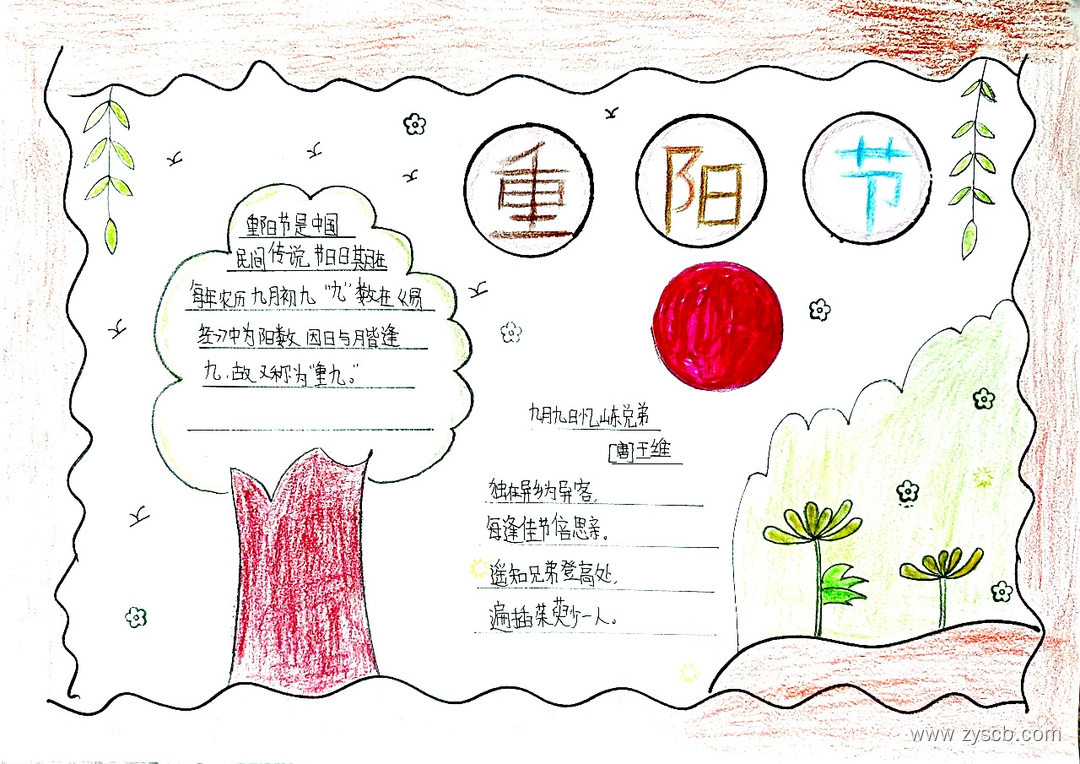 重阳节
重阳节是中国
民间传说节日日期在
每年农历九月初九“九”数在《易
经》中为阳数,因日与月皆逢
九,故又称为“重九。”
九月九日忆山东兄弟
[唐]王维
独在异乡为异客,
每逢佳节倍思亲。
遥知兄弟登高处,
遍插茱萸少一人。
www.zyscb.com